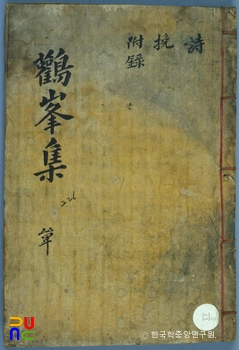 詩
挽
附錄
鸛峯集
單
226
© 한국학중앙연구원